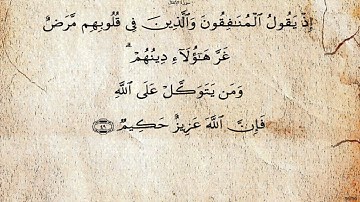 إِذْ يَقُولُ الْمُنَافِقُونَ وَالَّذِينَ فِي قُلُوبِهِم مَّرَضٌ
غَرَّ هَٰؤُلَاءِ دِينُهُمْ ۗ
وَمَن يَتَوَكَّلْ عَلَى اللَّهِ
فَإِنَّ اللَّهَ عَزِيزٌ حَكِيمٌ ﴿٤٩﴾